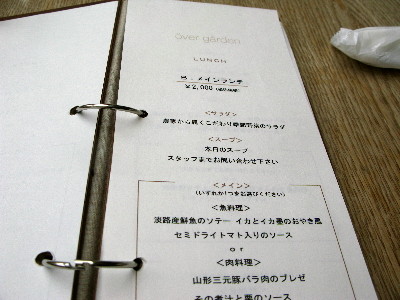 over garden
LUNCH
B．メインランチ
￥2,000
＜サラダ＞
農家から届くこだわり季節野菜のサラダ
＜スープ＞
本日のスープ
スタッフまでお問い合わせ下さい
＜メイン＞
(いずれか1つをお選びください)
＜魚料理＞
淡路産鮮魚のソテー イカとイカ墨のおやき風
セミドライトマト入りのソース
or
＜肉料理＞
山形三元豚バラ肉のブレゼ
その煮汁と栗のソース